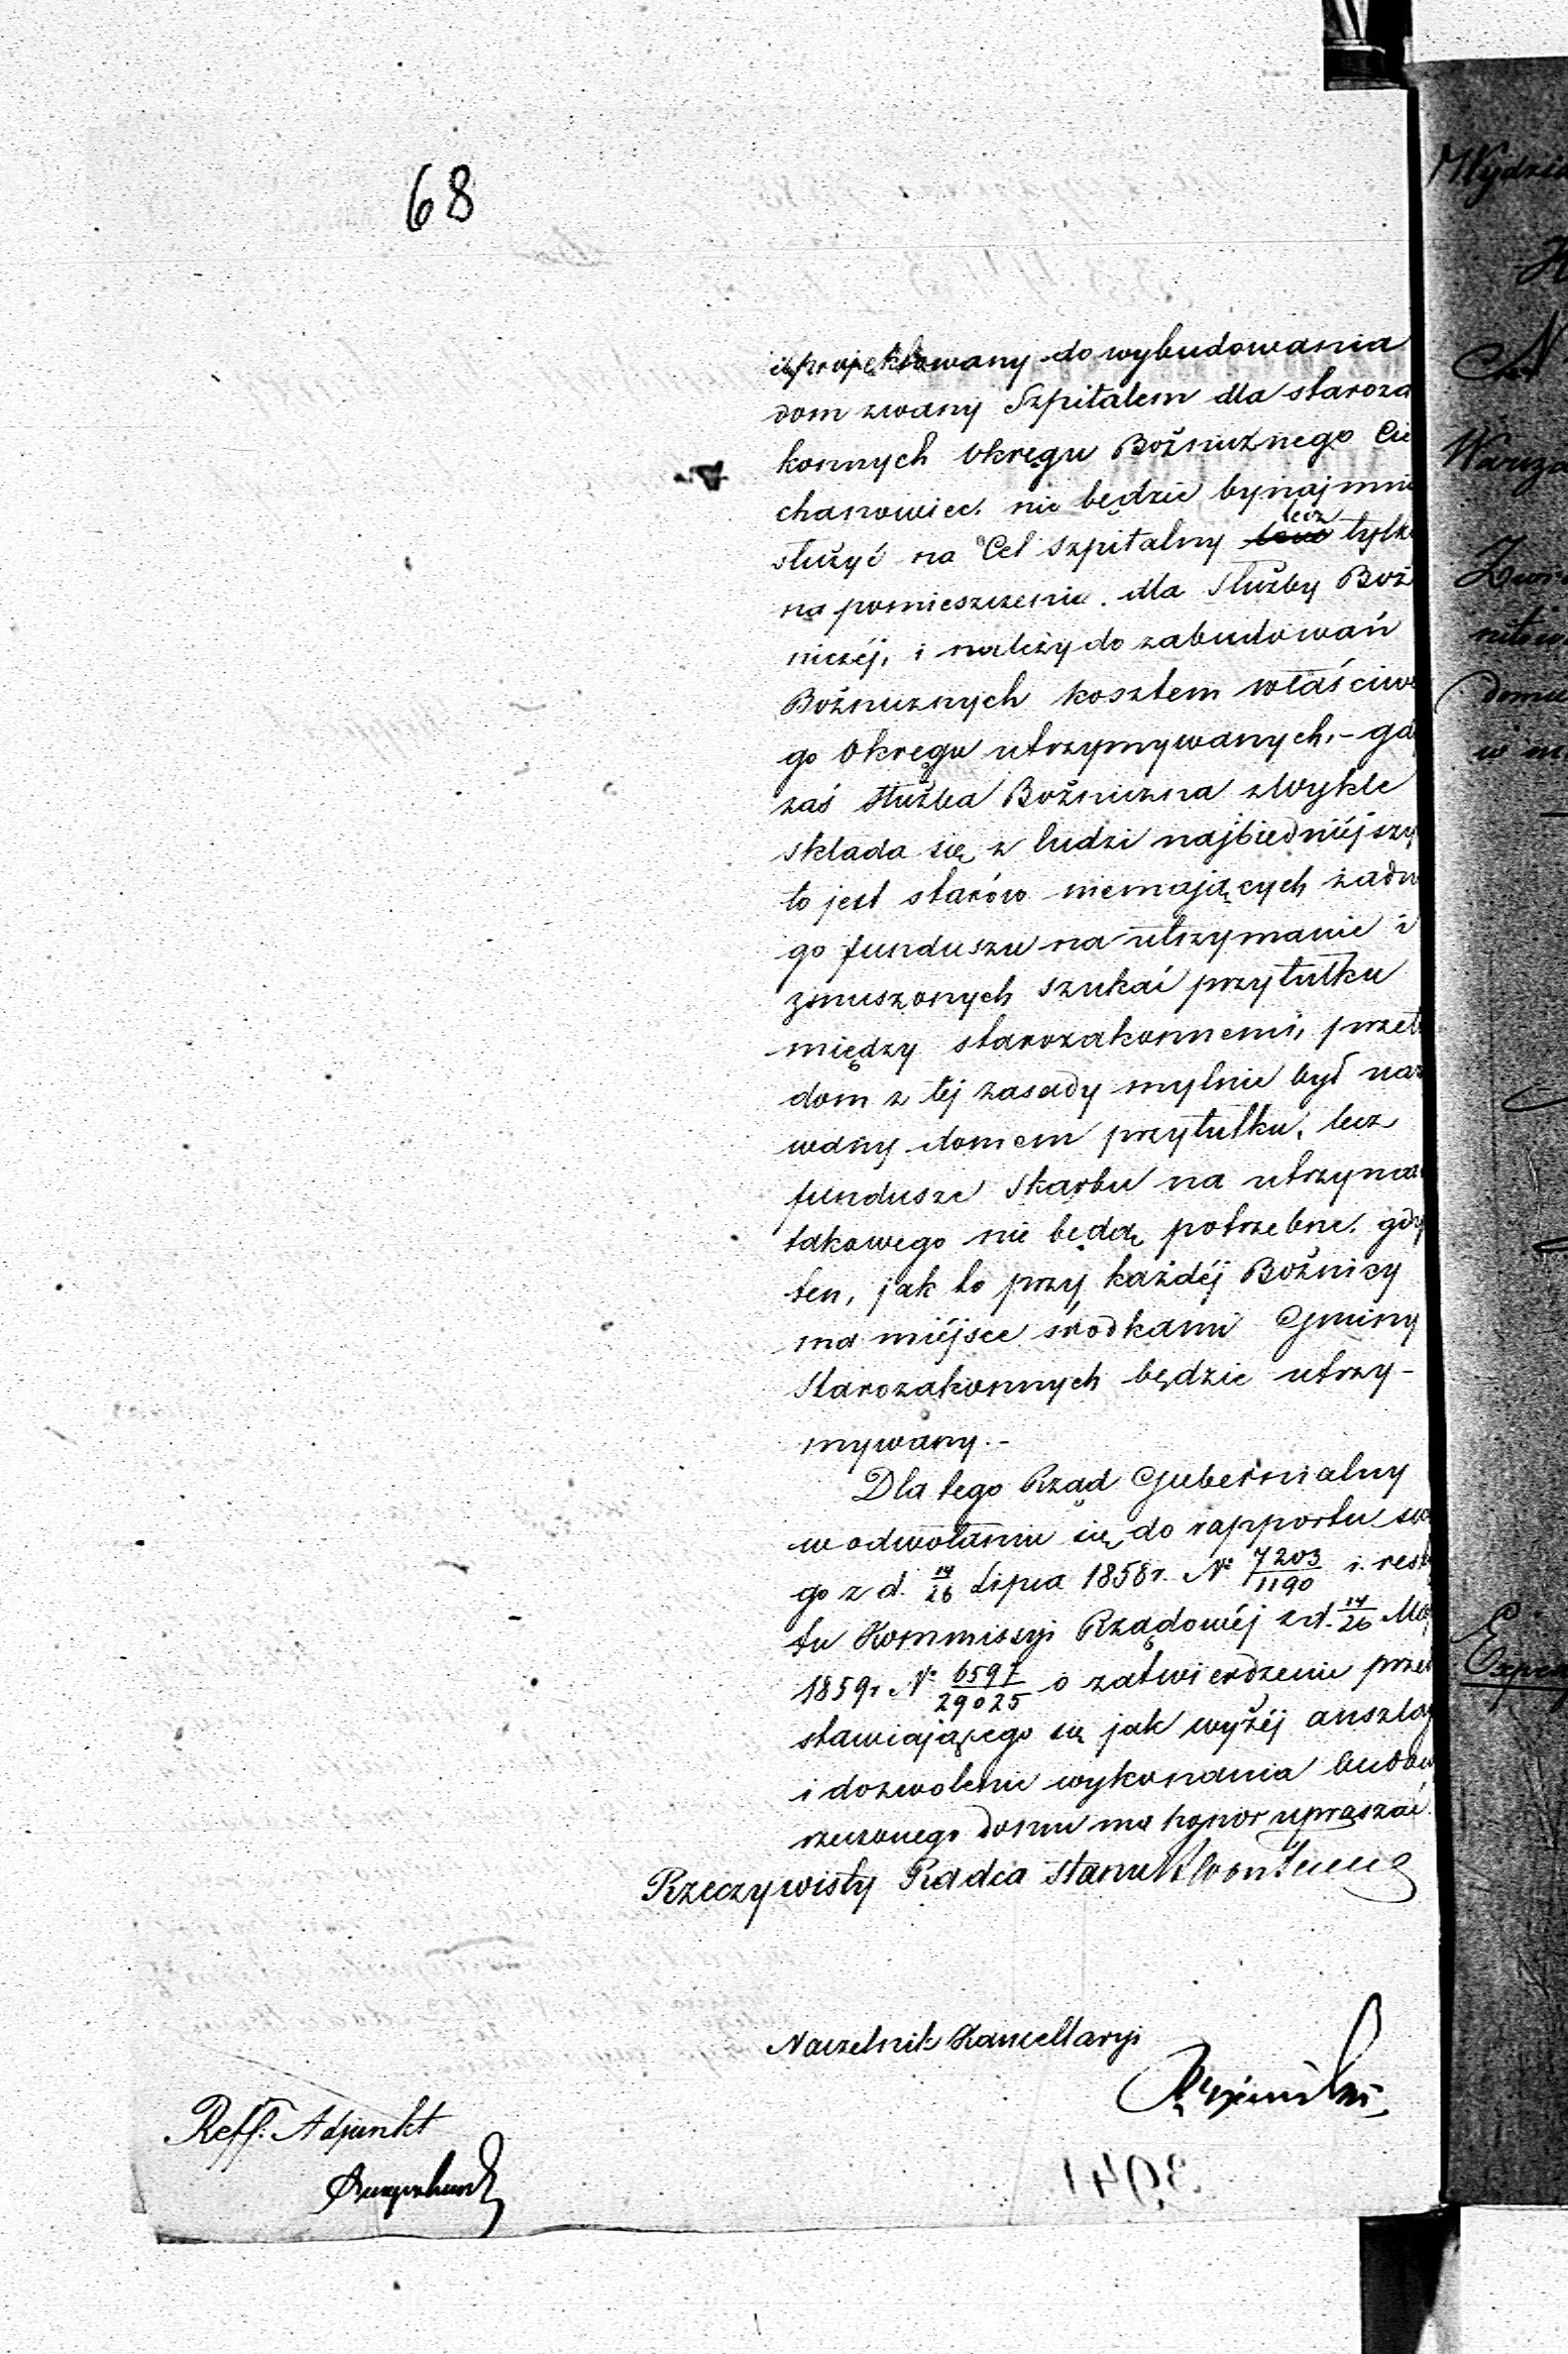 68
iż projektowany do wybudowania
dom zwany Szpitalem dla staroza
konnych Okręgu Bożnicznego Cie
chanowiec. nie będzie bynajmni
służyć na Cel Szpitalny lecz tylk
na pomieszczenie. dla Służby Boż
niczéj, i należy do zabudowań
Bożnicznych kosztem właściwe
go Okręgu utrzymywanych,- gd
zaś Służba Bożniczna zwykle
składa się z ludzi najbiedniéjszy
to jest starców niemających żadn
go funduszu na utrzymanie i
zmuszonych szukać przytułku
między starozakonnemi, przeto
dom z téj zasady mylnie był naz
wany domem przytułku, lecz
fundusze Skarbu na utrzyma
takowego nie będą potrzebne. gdy
ten, jak to przy każdéj Bożnicy
ma miéjsce środkami Gminy
Starozakonnych będzie utrzy-
mywany.-
Dla tego Rząd Gubernialny
w odwołaniu się do rapportu swe
go z d. 14/26 Lipca 1858 r. N° 7203/1190 i resk
tu Kommissyi Rządowéj z d. 14/26 Ma
1859 r N° 6597/29025 o zatwierdzenie prze
stawiającego się jak wyżéj anszlag
i dozwolenie wykonania budow
rzeczonego domu ma honor upraszać.
Rzeczywisty Radca Stanu
Naczelnik Kancellaryi
Reff. Adjunkt
3941
Wydzia
Warsza
domu
w m
Exped